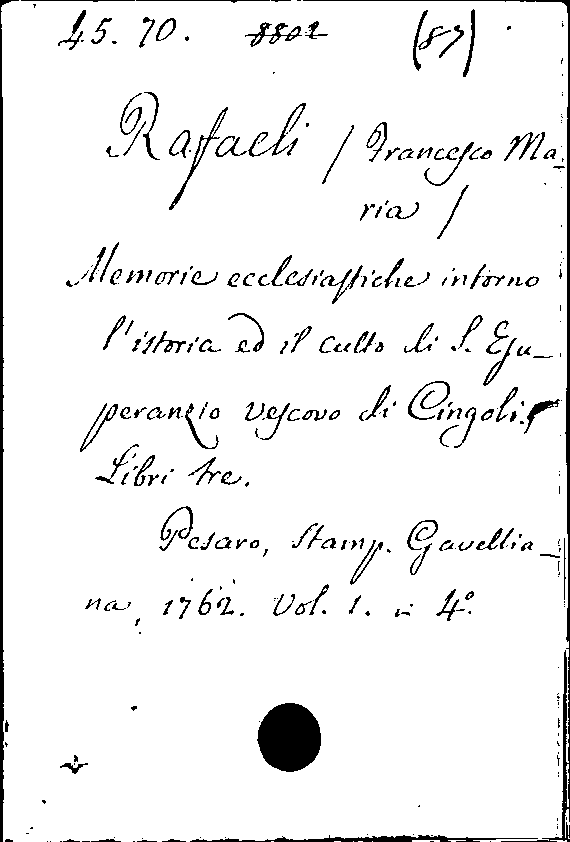 45. 70. 8802 (87)
Rafaeli / Francesco Ma-
ria /
Memorie ecclesiastiche intorno
l'istoria ed il culto di S. Esu-
peranzio vescovo di Cingoli.
Libri tre.
Pesaro, Stamp. Gavellia-
na, 1762. Vol. 1. in 4º.